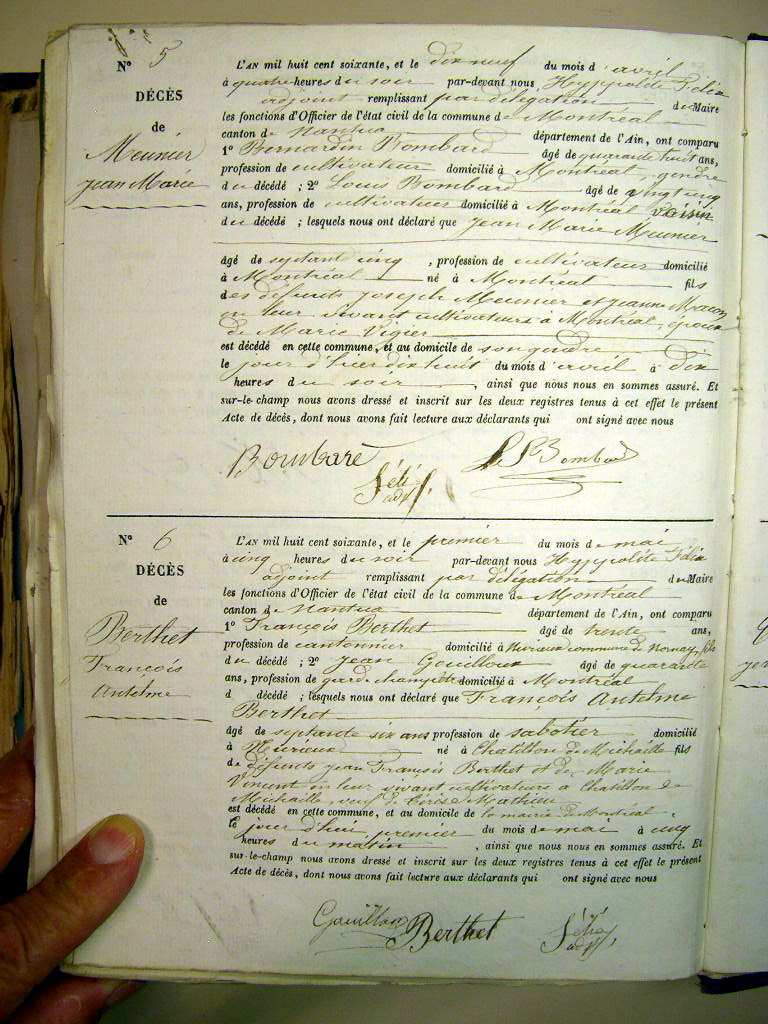 N° 5
DÉCÈS
de
Meunier
Jean Marie
L'AN mil huit cent soixante, et le dix neuf du mois d'avril
à quatre heures du soir par-devant nous Hyppolite Félix
adjoint remplissant par délégation de Maire
les fonctions d'Officier de l'état civil de la commune de Montréal
canton de Nantua département de l'Ain, ont comparu
1° Bernardin Bombard âgé de quarante huit ans,
profession de cultivateur domicilié à Montréal, gendre
du décédé ; 2° Louis Bombard âgé de vingt cinq
ans, profession de cultivateur domicilié à Montréal voisin
du décédé ; lesquels nous ont déclaré que Jean Marie Meunier
âgé de septante cinq, profession de cultivateur domicilié
à Montréal né à Montréal fils
des défunts Joseph Meunier et Jeanne
en leur vivant cultivateurs à Montréal, époux
de Marie Vigier
est décédé en cette commune, et au domicile de son gendre
le jour d'hier dix huit du mois d'avril à dix
heures du soir, ainsi que nous nous en sommes assuré. Et
sur-le-champ nous avons dressé et inscrit sur les deux registres tenus à cet effet le présent
Acte de décès, dont nous avons fait lecture aux déclarants qui ont signé avec nous
Bombard
Bombard
adjt
N° 6
DÉCÈS
de
Berthet
François
Antelme
L'AN mil huit cent soixante, et le premier du mois de mai
à cinq heures du soir par-devant nous Hyppolite Félix
adjoint remplissant par délégation de Maire
les fonctions d'Officier de l'état civil de la commune de Montréal
canton de Nantua département de l'Ain, ont comparu
1° François Berthet âgé de trente ans,
profession de cantonnier domicilié à commune de Nornay, fils
du décédé ; 2° Jean Gouilloux âgé de quarante
ans, profession de garde champêtre domicilié à Montréal
d décédé ; lesquels nous ont déclaré que François Antelme
Berthet
âgé de septante six ans profession de sabotier domicilié
à Neurieux né à Chatillon de Michaille fils
de défunts Jean François Berthet et de Marie
Vincent en leur vivant cultivateurs à Chatillon de
Michaille, veuf de Mathieu
est décédé en cette commune, et au domicile de la mairie de Montréal
le jour d'hui, premier du mois de mai à cinq
heures du matin, ainsi que nous nous en sommes assuré. Et
sur-le-champ nous avons dressé et inscrit sur les deux registres tenus à cet effet le présent
Acte de décès, dont nous avons fait lecture aux déclarants qui ont signé avec nous
Gouilloux Berthet Félix
adjt